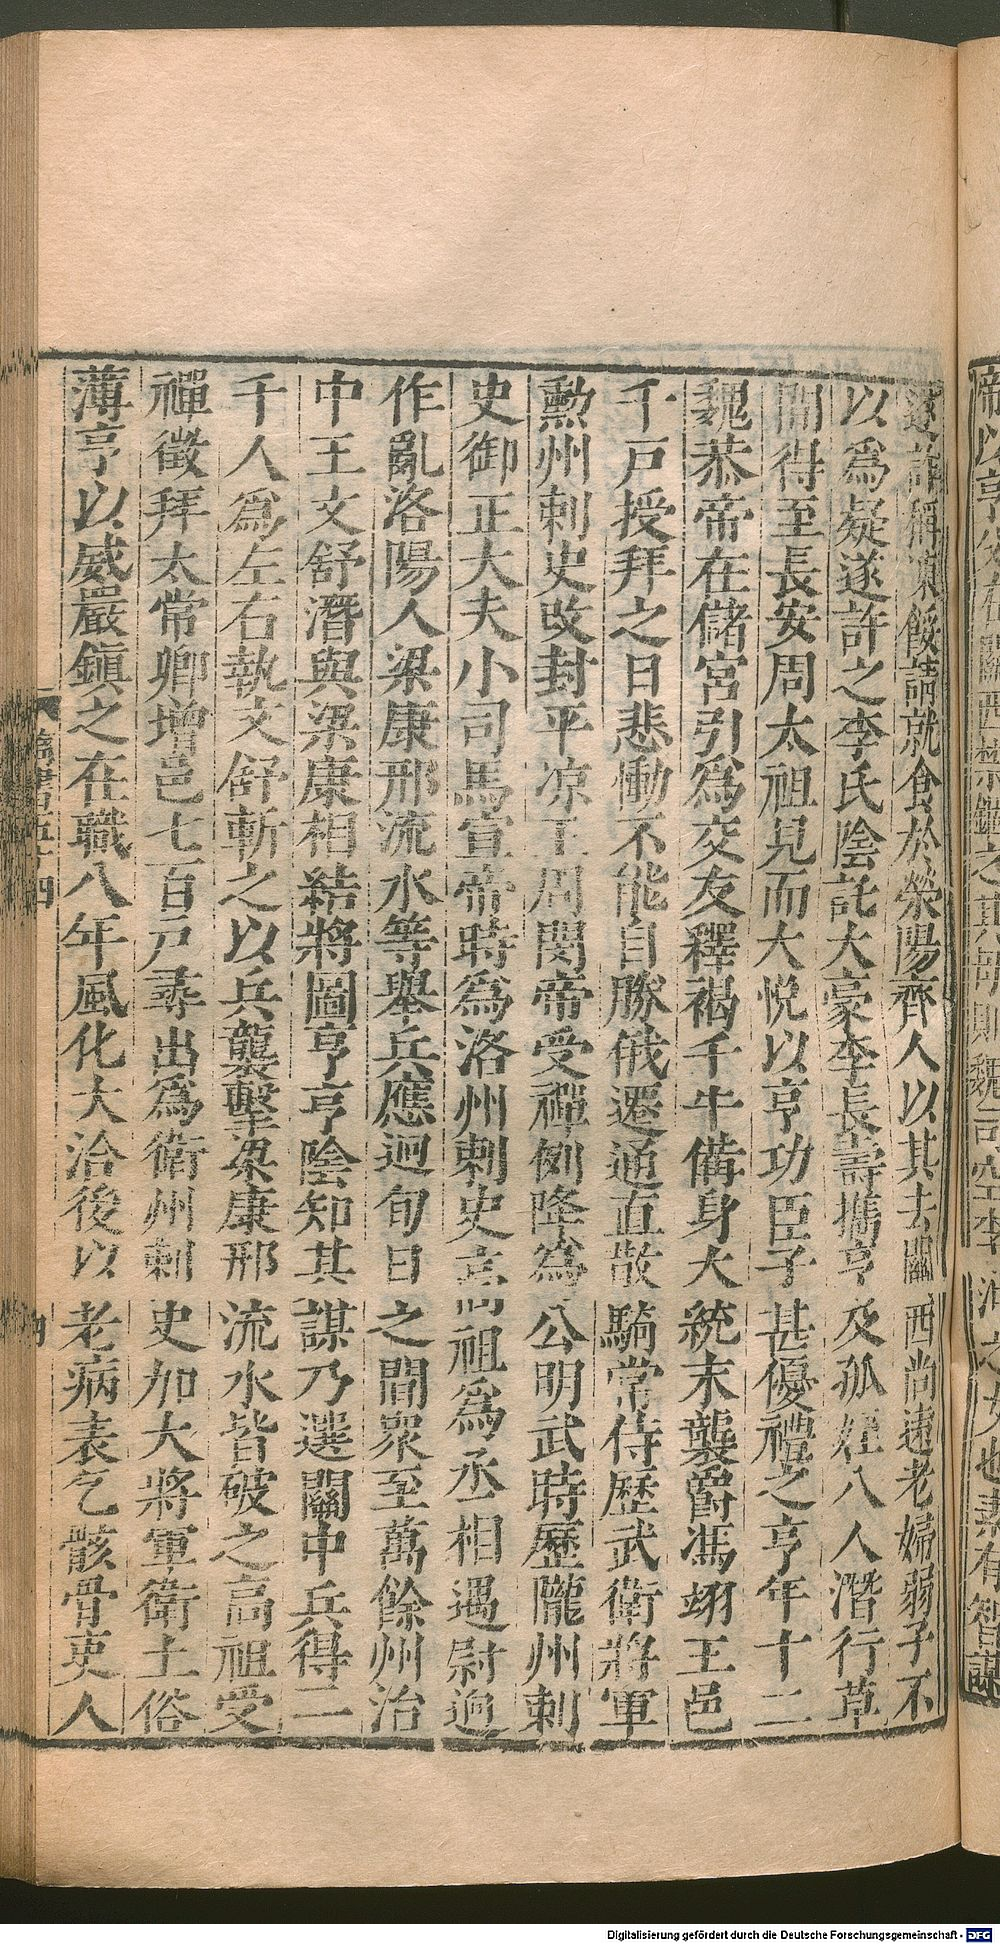 遂詐稱凍餒請就食於滎陽齊人以其去關西尚遠老婦弱子不
以爲疑遂許之李氏陰託大豪李長壽攜亨及孤姪八人潛行草
間得至長安周太祖見而大悅以亨功臣子甚優禮之亨年十二
魏恭帝在儲宮引爲交友釋褐千牛備身大統末襲爵馮翊王邑
千戸授拜之日悲慟不能自勝俄遷通直散騎常侍歷武衛將軍
勳州刺史改封平凉王周閔帝受禪例降爲公明武時歷隴州刺
史御正大夫小司馬宣帝時爲洛州刺史高祖爲丞相遇尉迥
作亂洛陽人梁康邢流水等舉兵應迥旬日之間衆至萬餘州治
中王文舒潛與梁康相結將圖亨亨陰知其謀乃選關中兵得二
千人爲左右執文舒斬之以兵襲擊梁康邢流水皆破之高祖受
禪徵拜太常卿增邑七百戸尋出爲衛州刺史加大將軍衛土俗
薄亨以威嚴鎭之在職八年風化大洽後以老病表乞骸骨吏人
四
Digitalisierung gefördert durch die Deutsche Forschungsgemeinschaft - DFG